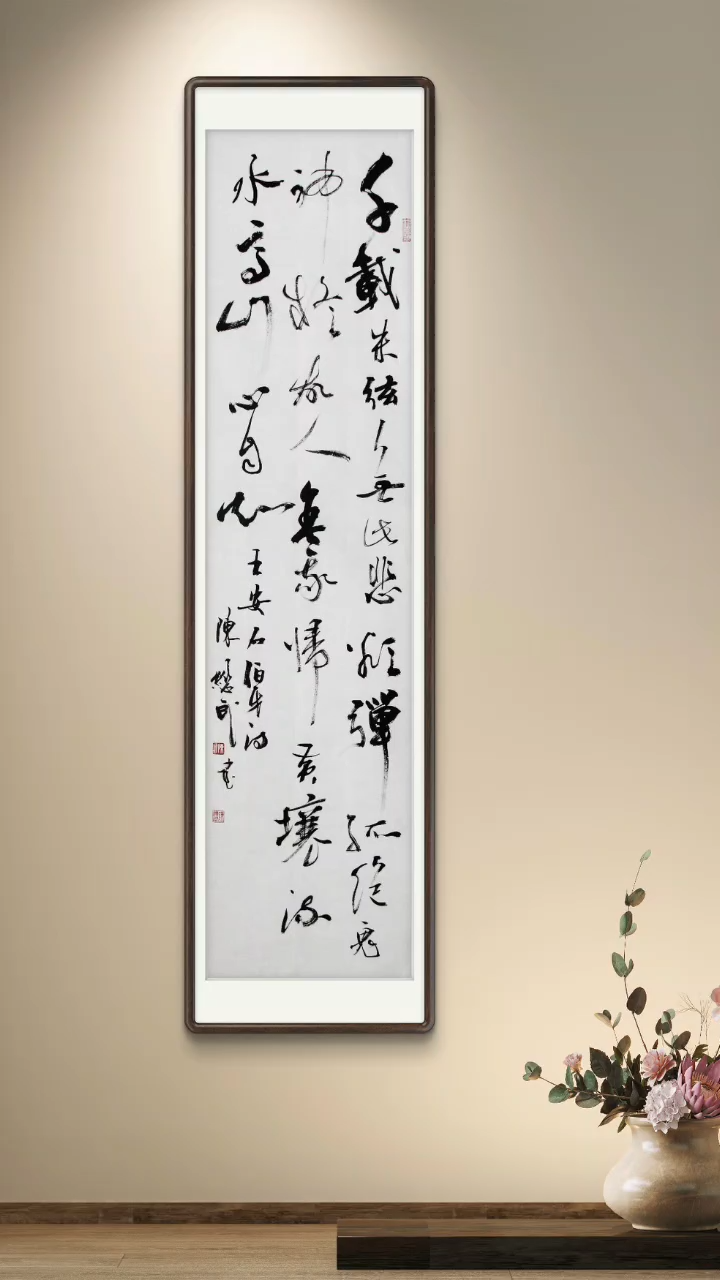 千載朱弦無此悲欲彈孤絕鬼
神疑故人舍我歸黃壤流
水高山心自知
王安石伯牙詩
陳武書